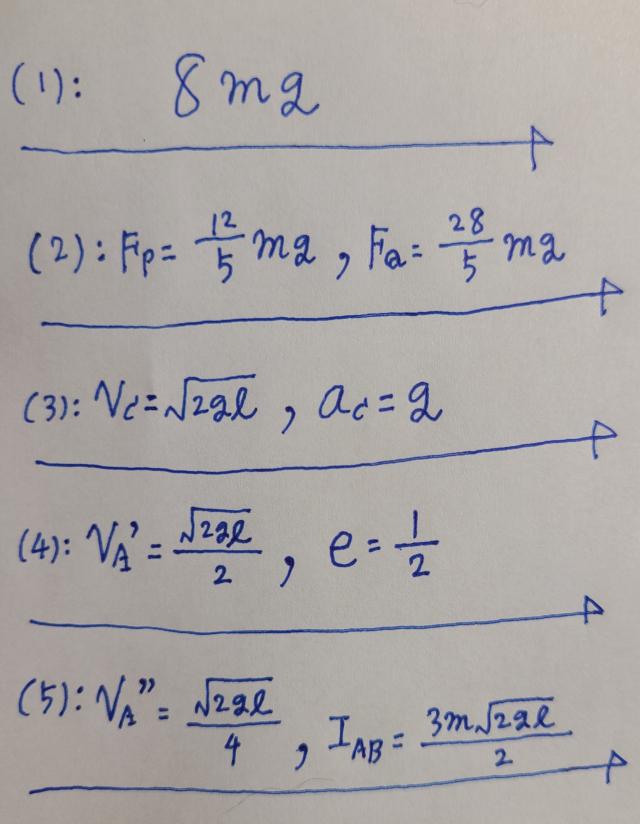 (1): 8mg
(2): Fp = 12/5 mg, FQ = 28/5 mg
(3): Vc = √2gl, ac = g
(4): VA' = √2gl/2, e = 1/2
(5): VA" = √2gl/4, IAB = 3m√2gl/2